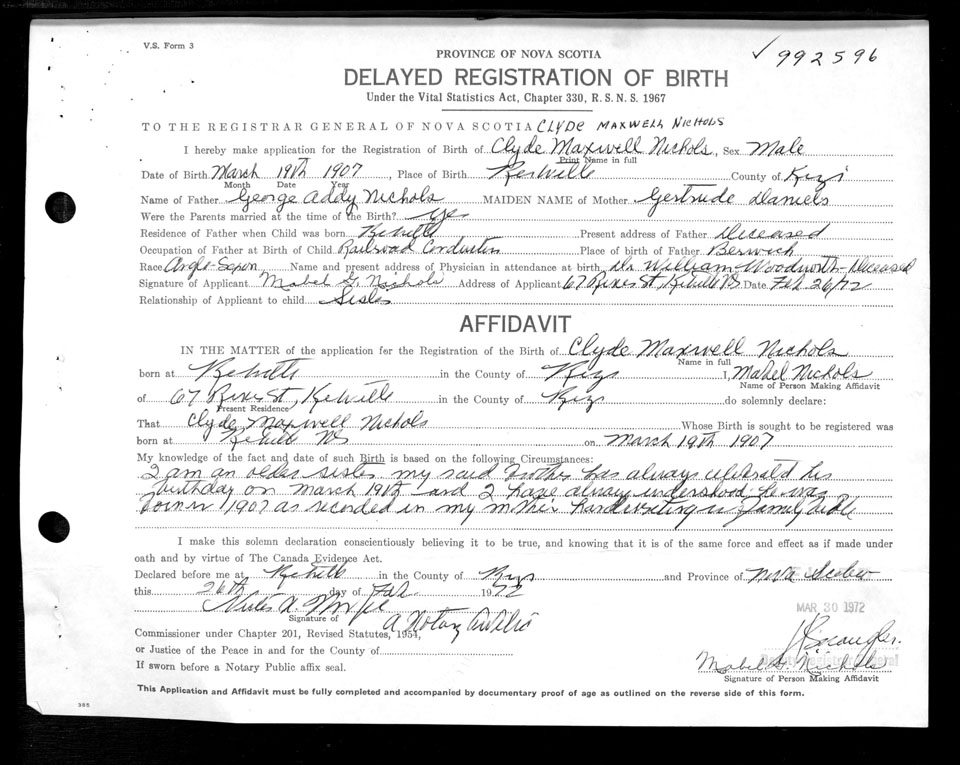 V.S. Form 3
✓ 992596
PROVINCE OF NOVA SCOTIA
DELAYED REGISTRATION OF BIRTH
Under the Vital Statistics Act, Chapter 330, R.S.N.S. 1967
TO THE REGISTRAR GENERAL OF NOVA SCOTIA CLYDE MAXWELL NICHOLS
I hereby make application for the Registration of Birth of Clyde Maxwell Nichols, Sex Male
Print Name in full
Date of Birth March 19th 1907, Place of Birth Kentville County of Kings
Month Date Year
Name of Father George Addy Nichols MAIDEN NAME of Mother Gertrude Daniels
Were the Parents married at the time of the Birth? Yes
Residence of Father when Child was born Kentville Present address of Father Deceased
Occupation of Father at Birth of Child Railroad Conductor Place of birth of Father Berwick
Race Anglo-Saxon Name and present address of Physician in attendance at birth Dr. William Woodworth - Deceased
Signature of Applicant Mabel G. Nichols Address of Applicant 67 St, Kentville NS Date Feb 26/72
Relationship of Applicant to child Sister
AFFIDAVIT
IN THE MATTER of the application for the Registration of the Birth of Clyde Maxwell Nichols
Name in full
born at Kentville in the County of Kings I, Mabel Nichols
Name of Person Making Affidavit
of 67 St, Kentville in the County of Kings do solemnly declare:
Present Residence
That Clyde Maxwell Nichols Whose Birth is sought to be registered was
born at Kentville NS on March 19th 1907
My knowledge of the fact and date of such Birth is based on the following Circumstances:
I am an older sister my said brother has always celebrated his
birthday on March 19th and I have always understood he was
born in 1907 as recorded in my mother handwriting in family bible
I make this solemn declaration conscientiously believing it to be true, and knowing that it is of the same force and effect as if made under
oath and by virtue of The Canada Evidence Act.
Declared before me at Kentville in the County of Kings and Province of Nova Scotia
this 26th day of Feb. 1972
MAR 30 1972
Signature of A Notary Public
Commissioner under Chapter 201, Revised Statutes, 1954,
or Justice of the Peace in and for the County of
Deputy Registrar General
Mabel G. Nichols
If sworn before a Notary Public affix seal.
Signature of Person Making Affidavit
This Application and Affidavit must be fully completed and accompanied by documentary proof of age as outlined on the reverse side of this form.
385